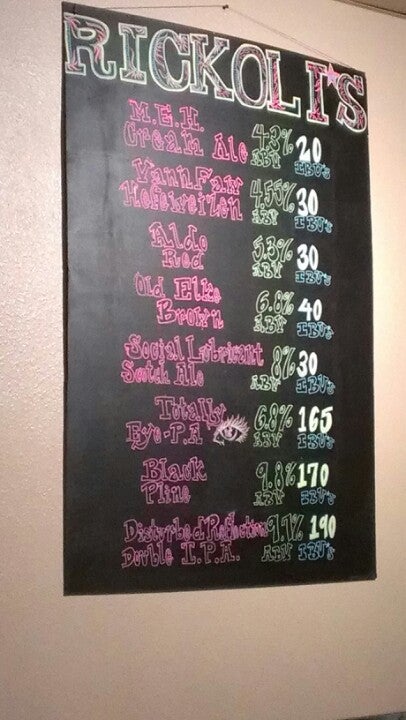 RICKOLI'S
M.E.H. 4.3% 20
Cream Ale ABV IBU's
VannFaw 4.55% 30
Hefeweizen ABV IBU's
Aldo 5.3% 30
Red ABV IBU's
Old Elke 6.8% 40
Brown ABV IBU's
Social Lubricant 8% 30
Scotch Ale ABV IBU's
Totally 6.8% 165
Eye-P.A ABV IBU's
Black 9.8% 170
Pline ABV IBU's
Disturbed Reflection 9.1% 190
Double I.P.A. ABV IBU's